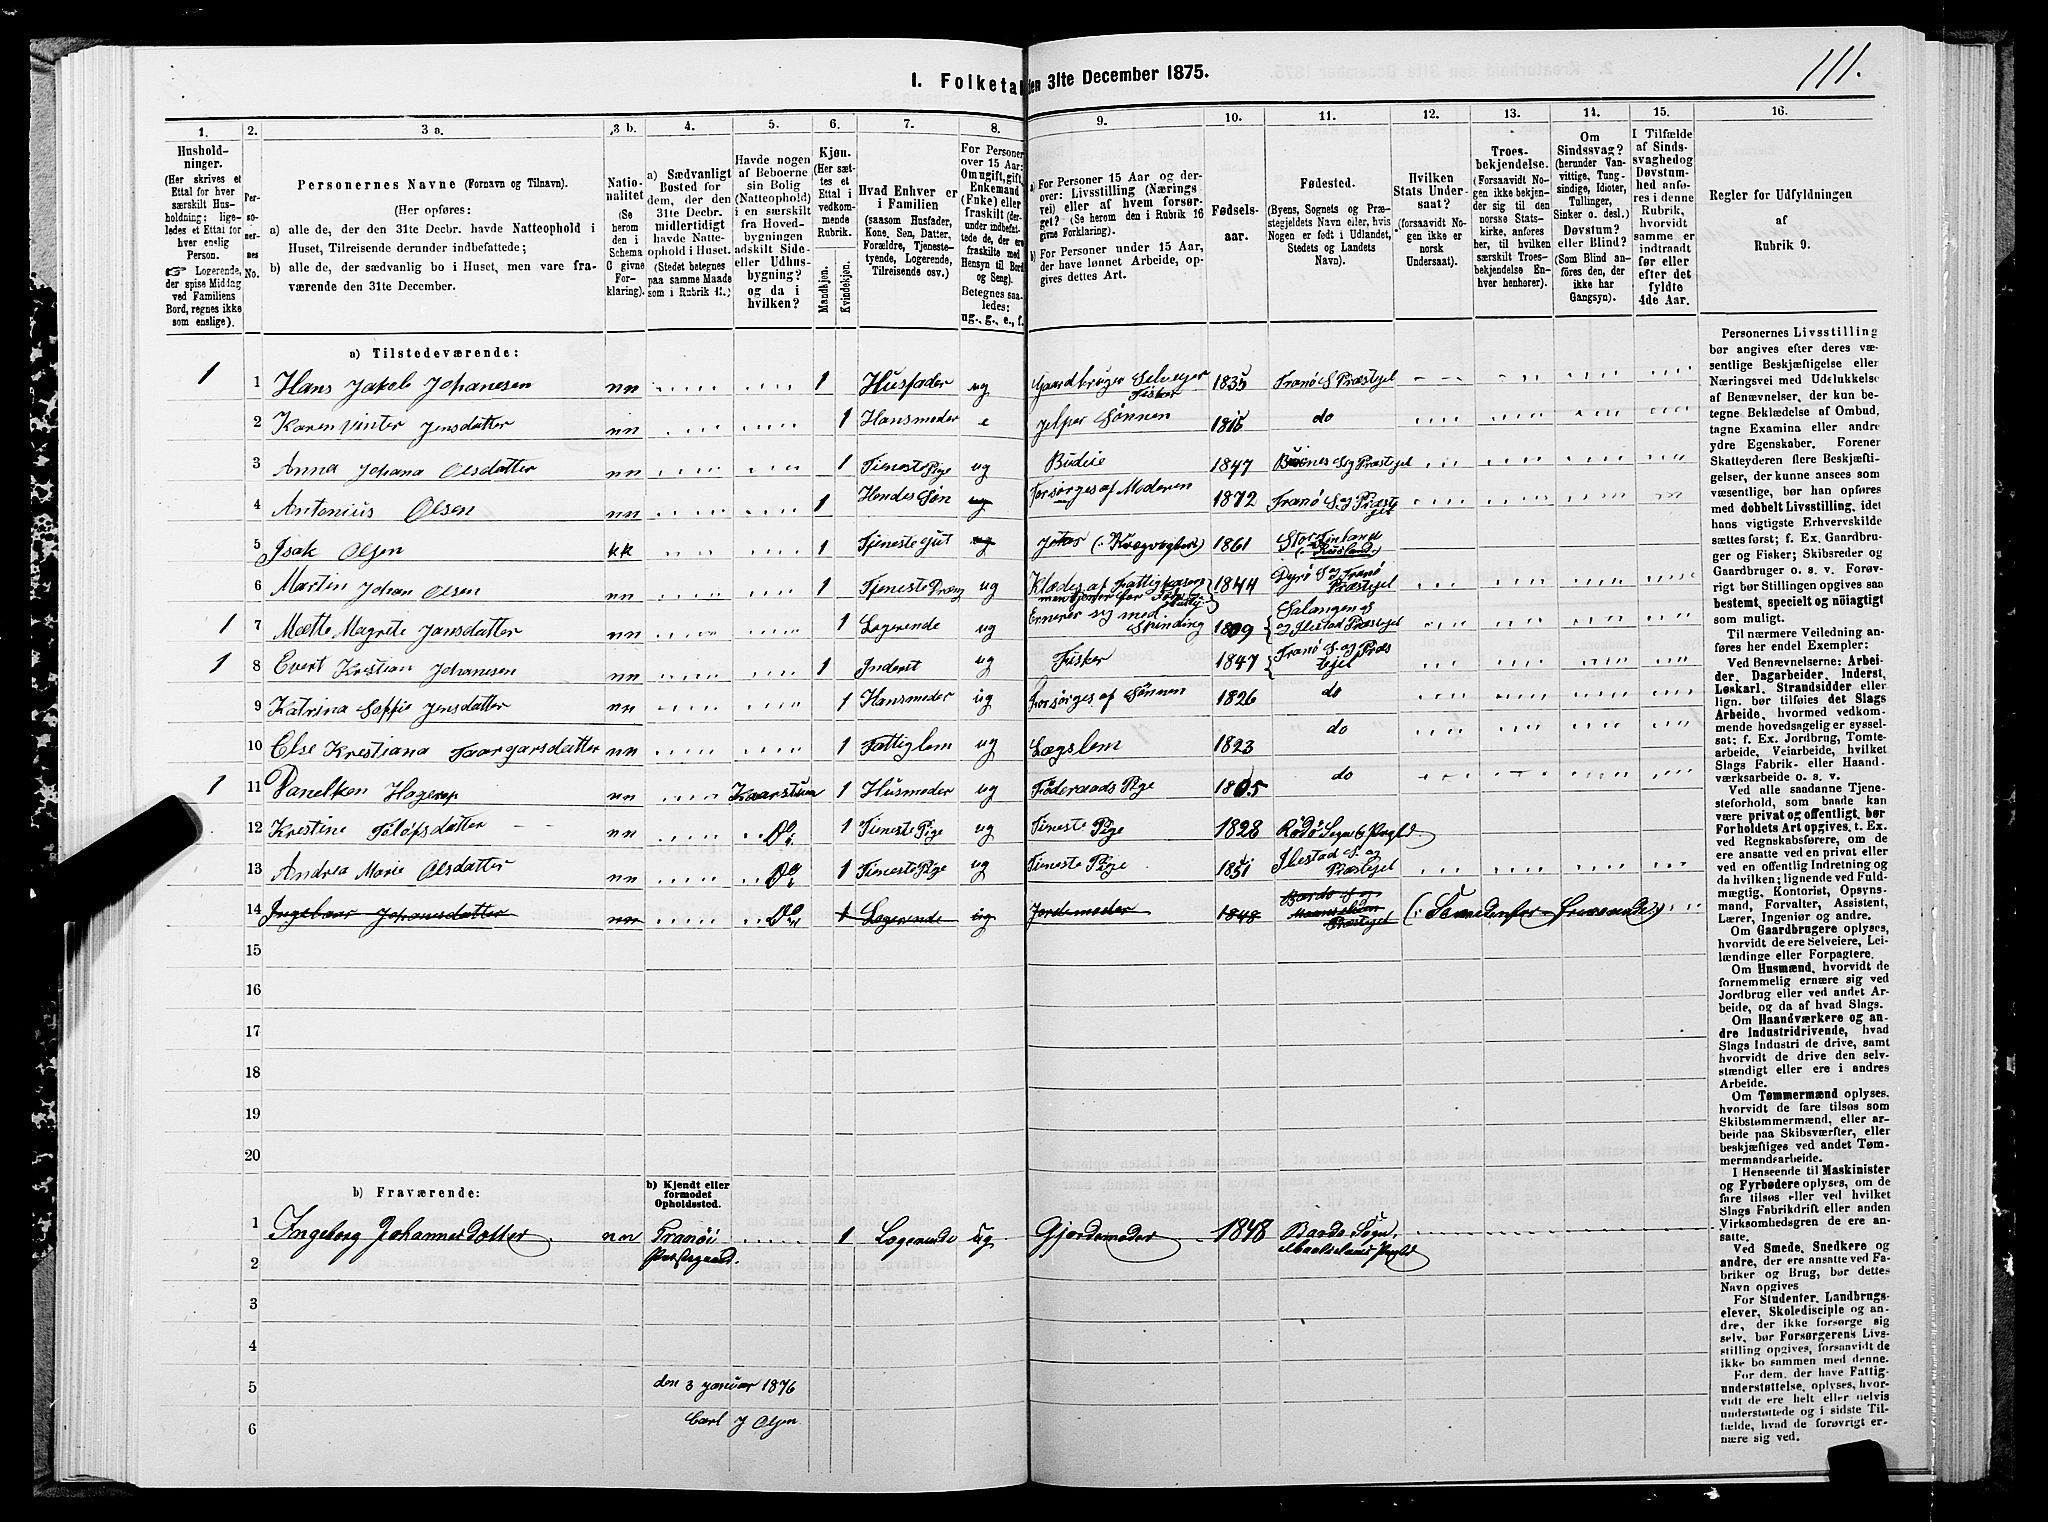 111.
I. Folketal den 31te December 1875.
1. 2. 3 a. 3 b. 4. 5. 6. 7. 8. 9. 10. 11. 12. 13. 14. 15. 16.
Hushold-
ninger.
(Her skrives et
Ettal for hver
særskilt Hus-
holdning; lige-
ledes et Ettal for
hver enslig
Person.
☞ Logerende,
der spise Middag
ved Familiens
Bord, regnes ikke
som enslige).
Per-
so-
ner-
nes
No.
Personernes Navne (Fornavn og Tilnavn).
(Her opføres:
a) alle de, der den 31te Decbr. havde Natteophold i
Huset, Tilreisende derunder indbefattede;
b) alle de, der sædvanlig bo i Huset, men vare fra-
værende den 31te December.
Natio-
nalitet
(Se
herom
den i
Schema
G givne
For-
klaring).
a) Sædvanligt
Bosted for
dem, der den
31te Decbr.
midlertidigt
havde Natte-
ophold i Huset.
(Stedet betegnes
paa samme Maade
som i Rubrik 11.)
Havde nogen
af Beboerne
sin Bolig
(Natteophold)
i en særskilt
fra Hoved-
bygningen
adskilt Side-
eller Udhus-
bygning?
og da i
hvilken?
Kjøn.
(Her sæt-
tes et
Ettal i
vedkom-
mende
Rubrik.
Mandkjøn.
Kvindekjøn.
Hvad Enhver er
i Familien
(saasom Husfader,
Kone, Søn, Datter,
Forældre, Tjeneste-
tyende, Logerende,
Tilreisende osv.)
For Personer
over 15 Aar:
Om ugift, gift,
Enkemand
(Enke) eller
fraskilt (der-
under indbefat-
tede de, der ere
fraskilte med
Hensyn til Bord
og Seng).
Betegnes saa-
ledes:
ug., g., e., f.
a) For Personer 15 Aar og der-
over: Livsstilling (Nærings-
vei) eller af hvem forsør-
get? (Se herom den i Rubrik 16
givne Forklaring).
b) For Personer under 15 Aar,
der have lønnet Arbeide, op-
gives dettes Art.
Fødsels-
aar.
Fødested.
(Byens, Sognets og Præ-
stegjeldets Navn eller, hvis
Nogen er født i Udlandet,
Stedets og Landets
Navn).
Hvilken
Stats Under-
saat?
(forsaavidt No-
gen ikke er
norsk
Undersaat).
Troes-
bekjendelse.
(Forsaavidt No-
gen ikke bekjen-
der sig til den
norske Stats-
kirke, anføres
her, til hvilken
særskilt Troes-
bekjendelse En-
hver henhører).
Om
Sindssvag?
(herunder Van-
vittige, Tung-
sindige, Idioter,
Tullinger,
Sinker o. desl.)
Døvstum?
eller Blind?
(Som Blind an-
føres den, der
ikke har
Gangsyn).
I Tilfælde
af Sinds-
svaghed og
Døvstum-
hed anfø-
res i denne
Rubrik,
hvorvidt
samme er
indtraadt
før eller
efter det
fyldte
4de Aar.
Regler for Udfyldningen
af
Rubrik 9.
a) Tilstedeværende:
1 1 Hans Jakob Johanesen nn 1 Husfader ug Gaardbruger Selveier Fisker 1835 Tranø S Præstejel
2 Karen Vinter Jensdatter nn 1 Hansmoder e jelper Sønnen 1815 do
3 Anna Johana Olsdatter nn 1 TienestePige ug Budeie 1847 Præstejel
4 Antonius Olsen nn 1 Hendes Søn ug Forsørges af Moderen 1872 Tranø S og Præstejel
5 Isak Olsen kk 1 Tjeneste gut ug Jeter 1861 (Rusland)
6 Martin Johan Olsen nn 1 Tjeneste Dræng ug Klædes af Fattigkassen men tjener for Føden 1844 Dyrø S og Tranø Præstejel
1 7 Mætte Magrete Jansdatter nn 1 Logerende ug Ernærer sig med Spinding 1809 Salangen S og Ibestad Præstejel
1 8 Evert Kristian Johanesen nn 1 Inderst ug Fisker 1847 Tranø S og Præstejel
9 Katrina Soffie Jensdatter nn 1 Hansmoder ug Forsørges af Sønnen 1826 do
10 Else Krestiana Taargarsdatter nn 1 Fattiglem ug Lægslem 1823 do
1 11 Hagerup nn Kaarstuen 1 Husmoder ug Føderaads Pige 1805 do
12 Krestine Toløfsdatter nn Do 1 TienestePige ug Tieneste Pige 1828 Rødø Sogn & Prgjld
13 Andrea Marie Olsdatter nn Do 1 TienestePige ug Tieneste Pige 1851 Ibestad S. og Præstejel
14 Ingebaar Johansdatter nn Do 1 Logerende ug Jordemoder 1848 Bardo S og Præstejel
15
16
17
18
19
20
b) Fraværende:
b) Kjendt eller
formodet
Opholdssted.
1 Ingeborg Johannesdatter nn Tranøi Præstegaard. 1 Logerende ug Gjordemoder 1848 Bardo Sogn, Maalselvens Prgjld
2
3
4
5
6
den 3 januar 1876
Carl J Olsen
Personernes Livsstilling
bør angives efter deres væ-
sentlige Beskjæftigelse eller
Næringsvei med Udelukkelse
af Benævnelser, der kun be-
tegne Beklædelse af Ombud,
tagne Examina eller andre
ydre Egenskaber. Forener
Skatteyderen flere Beskjæfti-
gelser, der kunne ansees som
væsentlige, bør han opføres
med dobbelt Livsstilling, idet
hans vigtigste Erhvervskilde
sættes først; f. Ex. Gaardbru-
ger og Fisker; Skibsreder og
Gaardbruger o. s. v. Forøv-
rigt bør Stillingen opgives saa
bestemt, specielt og nöiagtigt
som muligt.
Til nærmere Veiledning an-
føres her endel Exempler:
Ved Benævnelserne: Arbei-
der, Dagarbeider, Inderst,
Løskarl, Strandsidder eller
lign. bør tilføies det Slags
Arbeide, hvormed vedkom-
mende hovedsagelig er syssel-
sat; f. Ex. Jordbrug, Tomte-
arbeide, Veiarbeide, hvilket
Slags Fabrik- eller Haand-
værksarbeide o. s. v.
Ved alle saadanne Tjene-
steforhold, som baade kan
være privat og offentligt, bør
Forholdets Art opgives, f. Ex.
ved Regnskabsførere, om de
ere ansatte ved en privat eller
ved en offentlig Indretning og
da hvilken; lignende ved Fuld-
mægtig, Kontorist, Opsyns-
mand, Forvalter, Assistent,
Lærer, Ingeniør og andre.
Om Gaardbrugere oplyses,
hvorvidt de ere Selveiere, Lei-
lændinge eller Forpagtere.
Om Husmænd, hvorvidt de
fornemmelig ernære sig ved
Jordbrug eller ved andet Ar-
beide, og da af hvad Slags.
Om Haandværkere og an-
dre Industridrivende, hvad
Slags Industri de drive, samt
hvorvidt de drive den selv-
stændigt eller ere i andres
Arbeide.
Om Tømmermænd oplyses,
hvorvidt de fare tilsøs som
Skibstømmermænd, eller ar-
beide paa Skibsværfter, eller
beskjæftiges ved andet Tøm-
mermandsarbeide.
I Henseende til Maskinister
og Fyrbødere oplyses, om de
fare tilsøs eller ved hvilket
Slags Fabrikdrift eller anden
Virksomhedsgren de ere an-
satte.
Ved Smede, Snedkere og
andre, der ere ansatte ved Fa-
briker og Brug, bør dettes
Navn opgives
For Studenter, Landbrugs-
elever, Skoledisciple og an-
dre, der ikke forsørge sig
selv, bør Forsørgerens Livs-
stilling opgives, forsaavidt de
ikke bo sammen med denne.
For dem, der have Fattig-
understøttelse, oplyses, hvor-
vidt de ere helt eller delvis
understøttede og i sidste Til-
fælde, hvad de forøvrigt er-
nære sig ved.